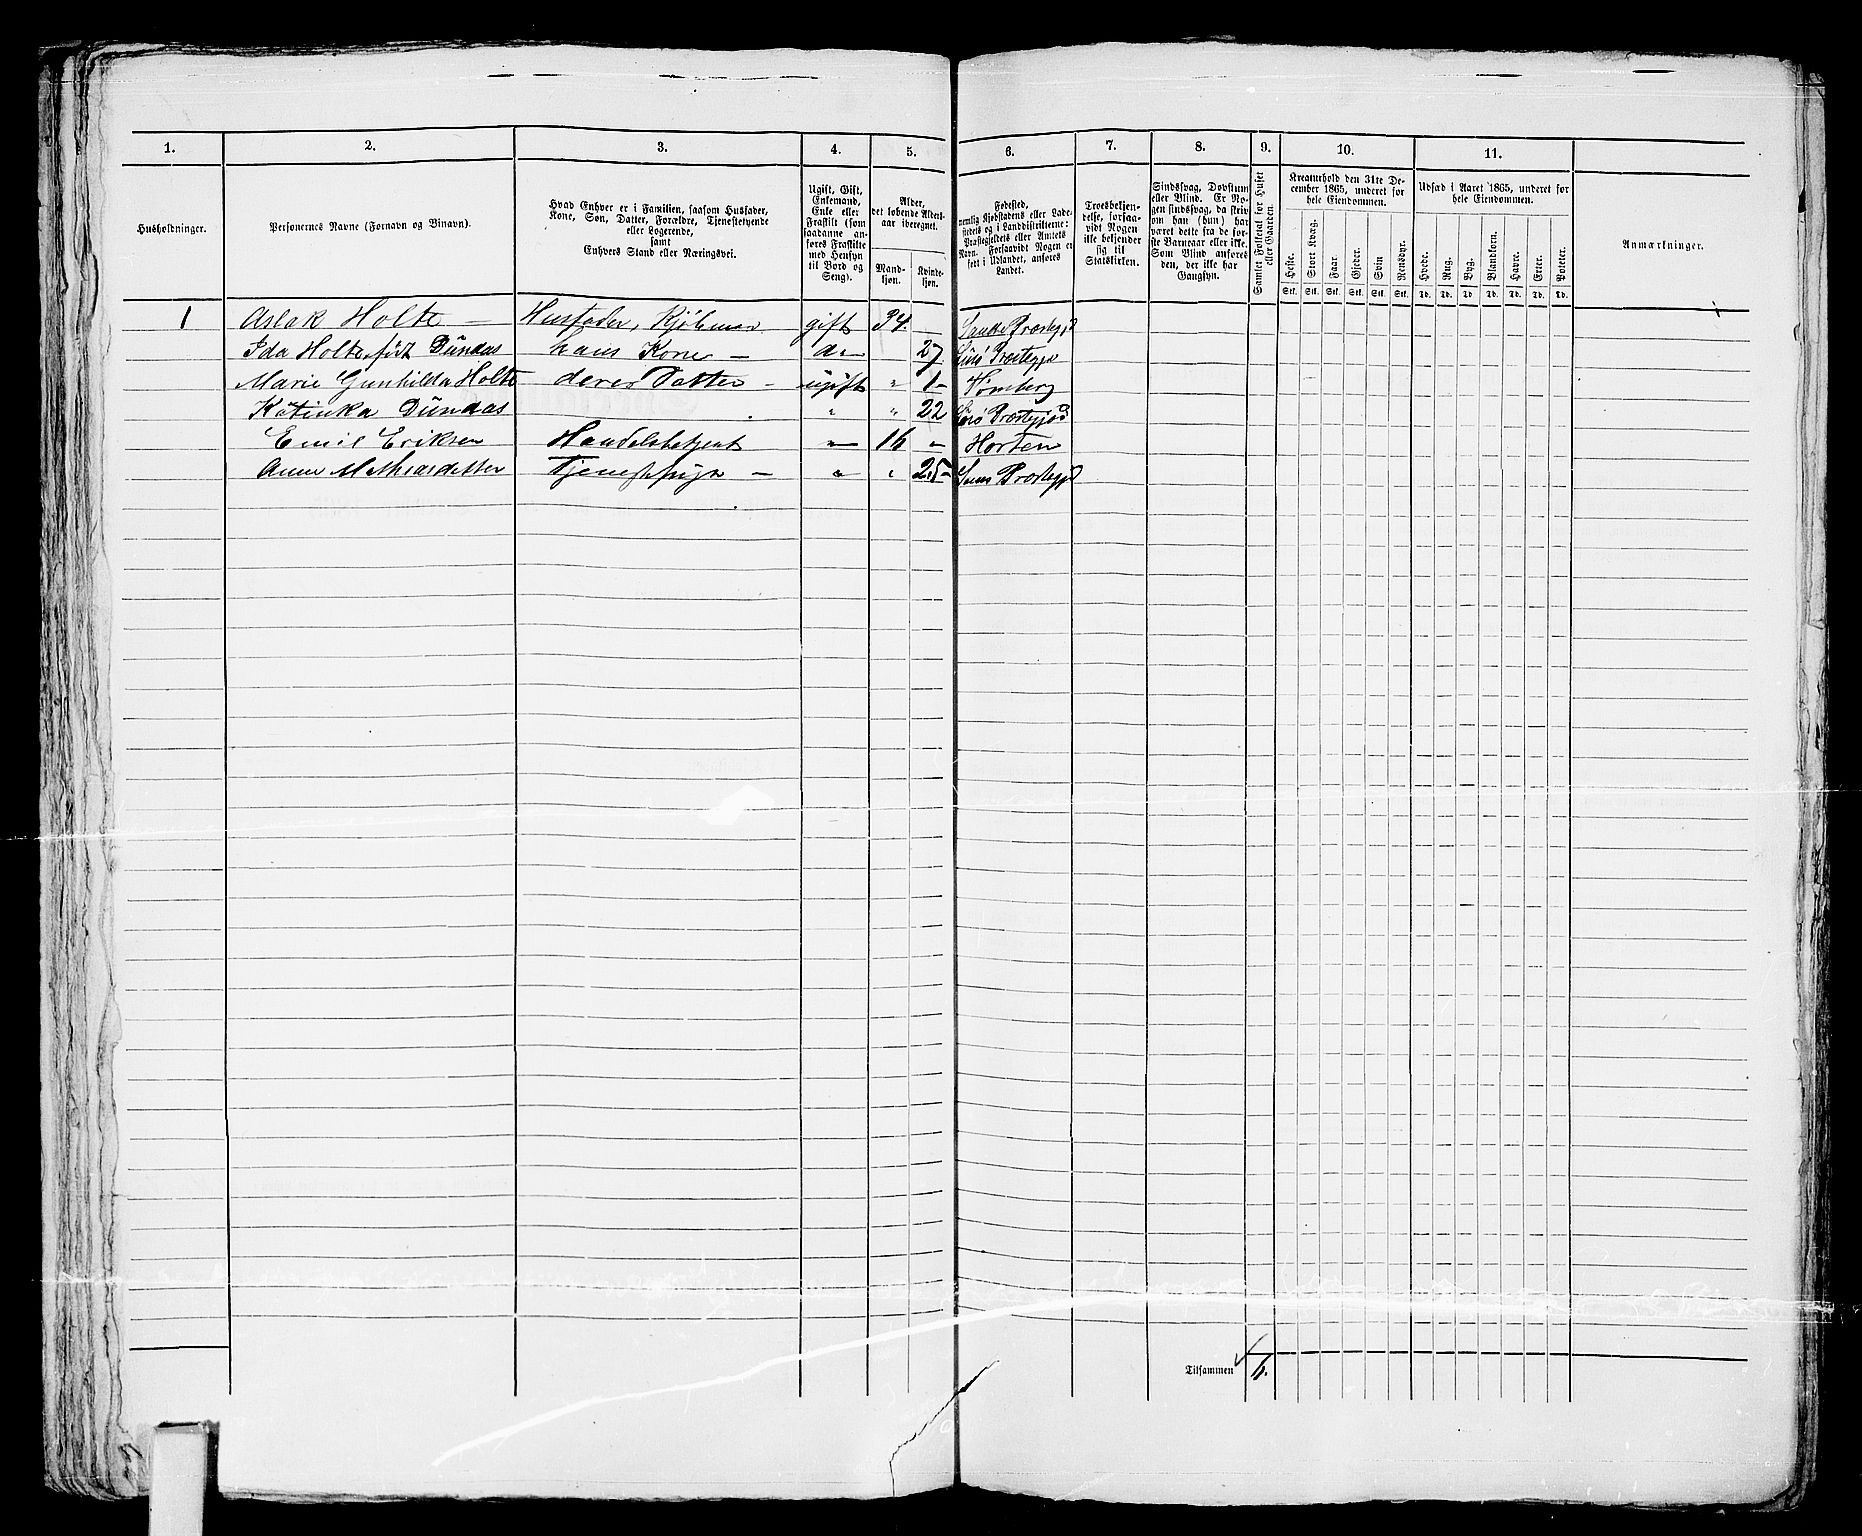 1. 2. 3. 4. 5. 6. 7. 8. 9. 10. 11.
Husholdninger.
Personernes Navne (Fornavn og Binavn).
Hvad Enhver er i Familien, saasom Husfader,
Kone, Søn, Datter, Forældre, Tjenestetyende
eller Logerende,
samt
Enhvers Stand eller Næringsvei.
Ugift, Gift,
Enkemand,
Enke eller
Fraskilt (som
saadanne an-
føres Fraskilte
med Hensyn
til Bord og
Seng).
Alder,
det løbende Alders-
aar iberegnet.
Mand-
kjøn.
Kvinde-
kjøn.
Fødested,
nemlig Kjøbstadens eller Lade-
stedets og i Landdistrikterne:
Præstegjeldets eller Amtets
Navn. Forsaavidt Nogen er
født i Udlandet, anføres
Landet.
Troesbekjen-
delse, forsaa-
vidt Nogen
ikke bekjender
sig til
Statskirken.
Sindssvag, Døvstum
eller Blind. Er No-
gen sindssvag, da skriv
om han (hun) har
været dette fra de før-
ste Barneaar eller ikke.
Som Blind anføres
den, der ikke har
Gangsyn.
Samlet Folketal for Huset
eller Gaarden.
Kreaturhold den 31te De-
cember 1865, underet for
hele Eiendommen.
Heste. Stort Kvæg. Faar. Gjeder. Svin Rensdyr.
Stk. Stk. Stk. Stk. Stk. Stk.
Udsæd i Aaret 1865, underet for
hele Eiendommen.
Hvede. Rug. Byg. Blandkorn. Havre. Erter. Poteter.
Td. Td. Td Td. Td. Td. Td.
Anmærkninger.
1 Aslak Holte — Husfader, Kjøbmand gift 34. — Præstegjd
Ida Holte, født Dündas hans Kone — do 27 Præstegjd
Marie Gunhilda Holte deres Datter — ugift " 1 — Tønsberg
Katinka Dündas " " 22 Præstegjd
Emil Eriksen Handelsbetjent " 16 — Horten
Anne Mathiasdatter Tjenestpige — " " 25 — Præstegjd
Tilsammen 6.